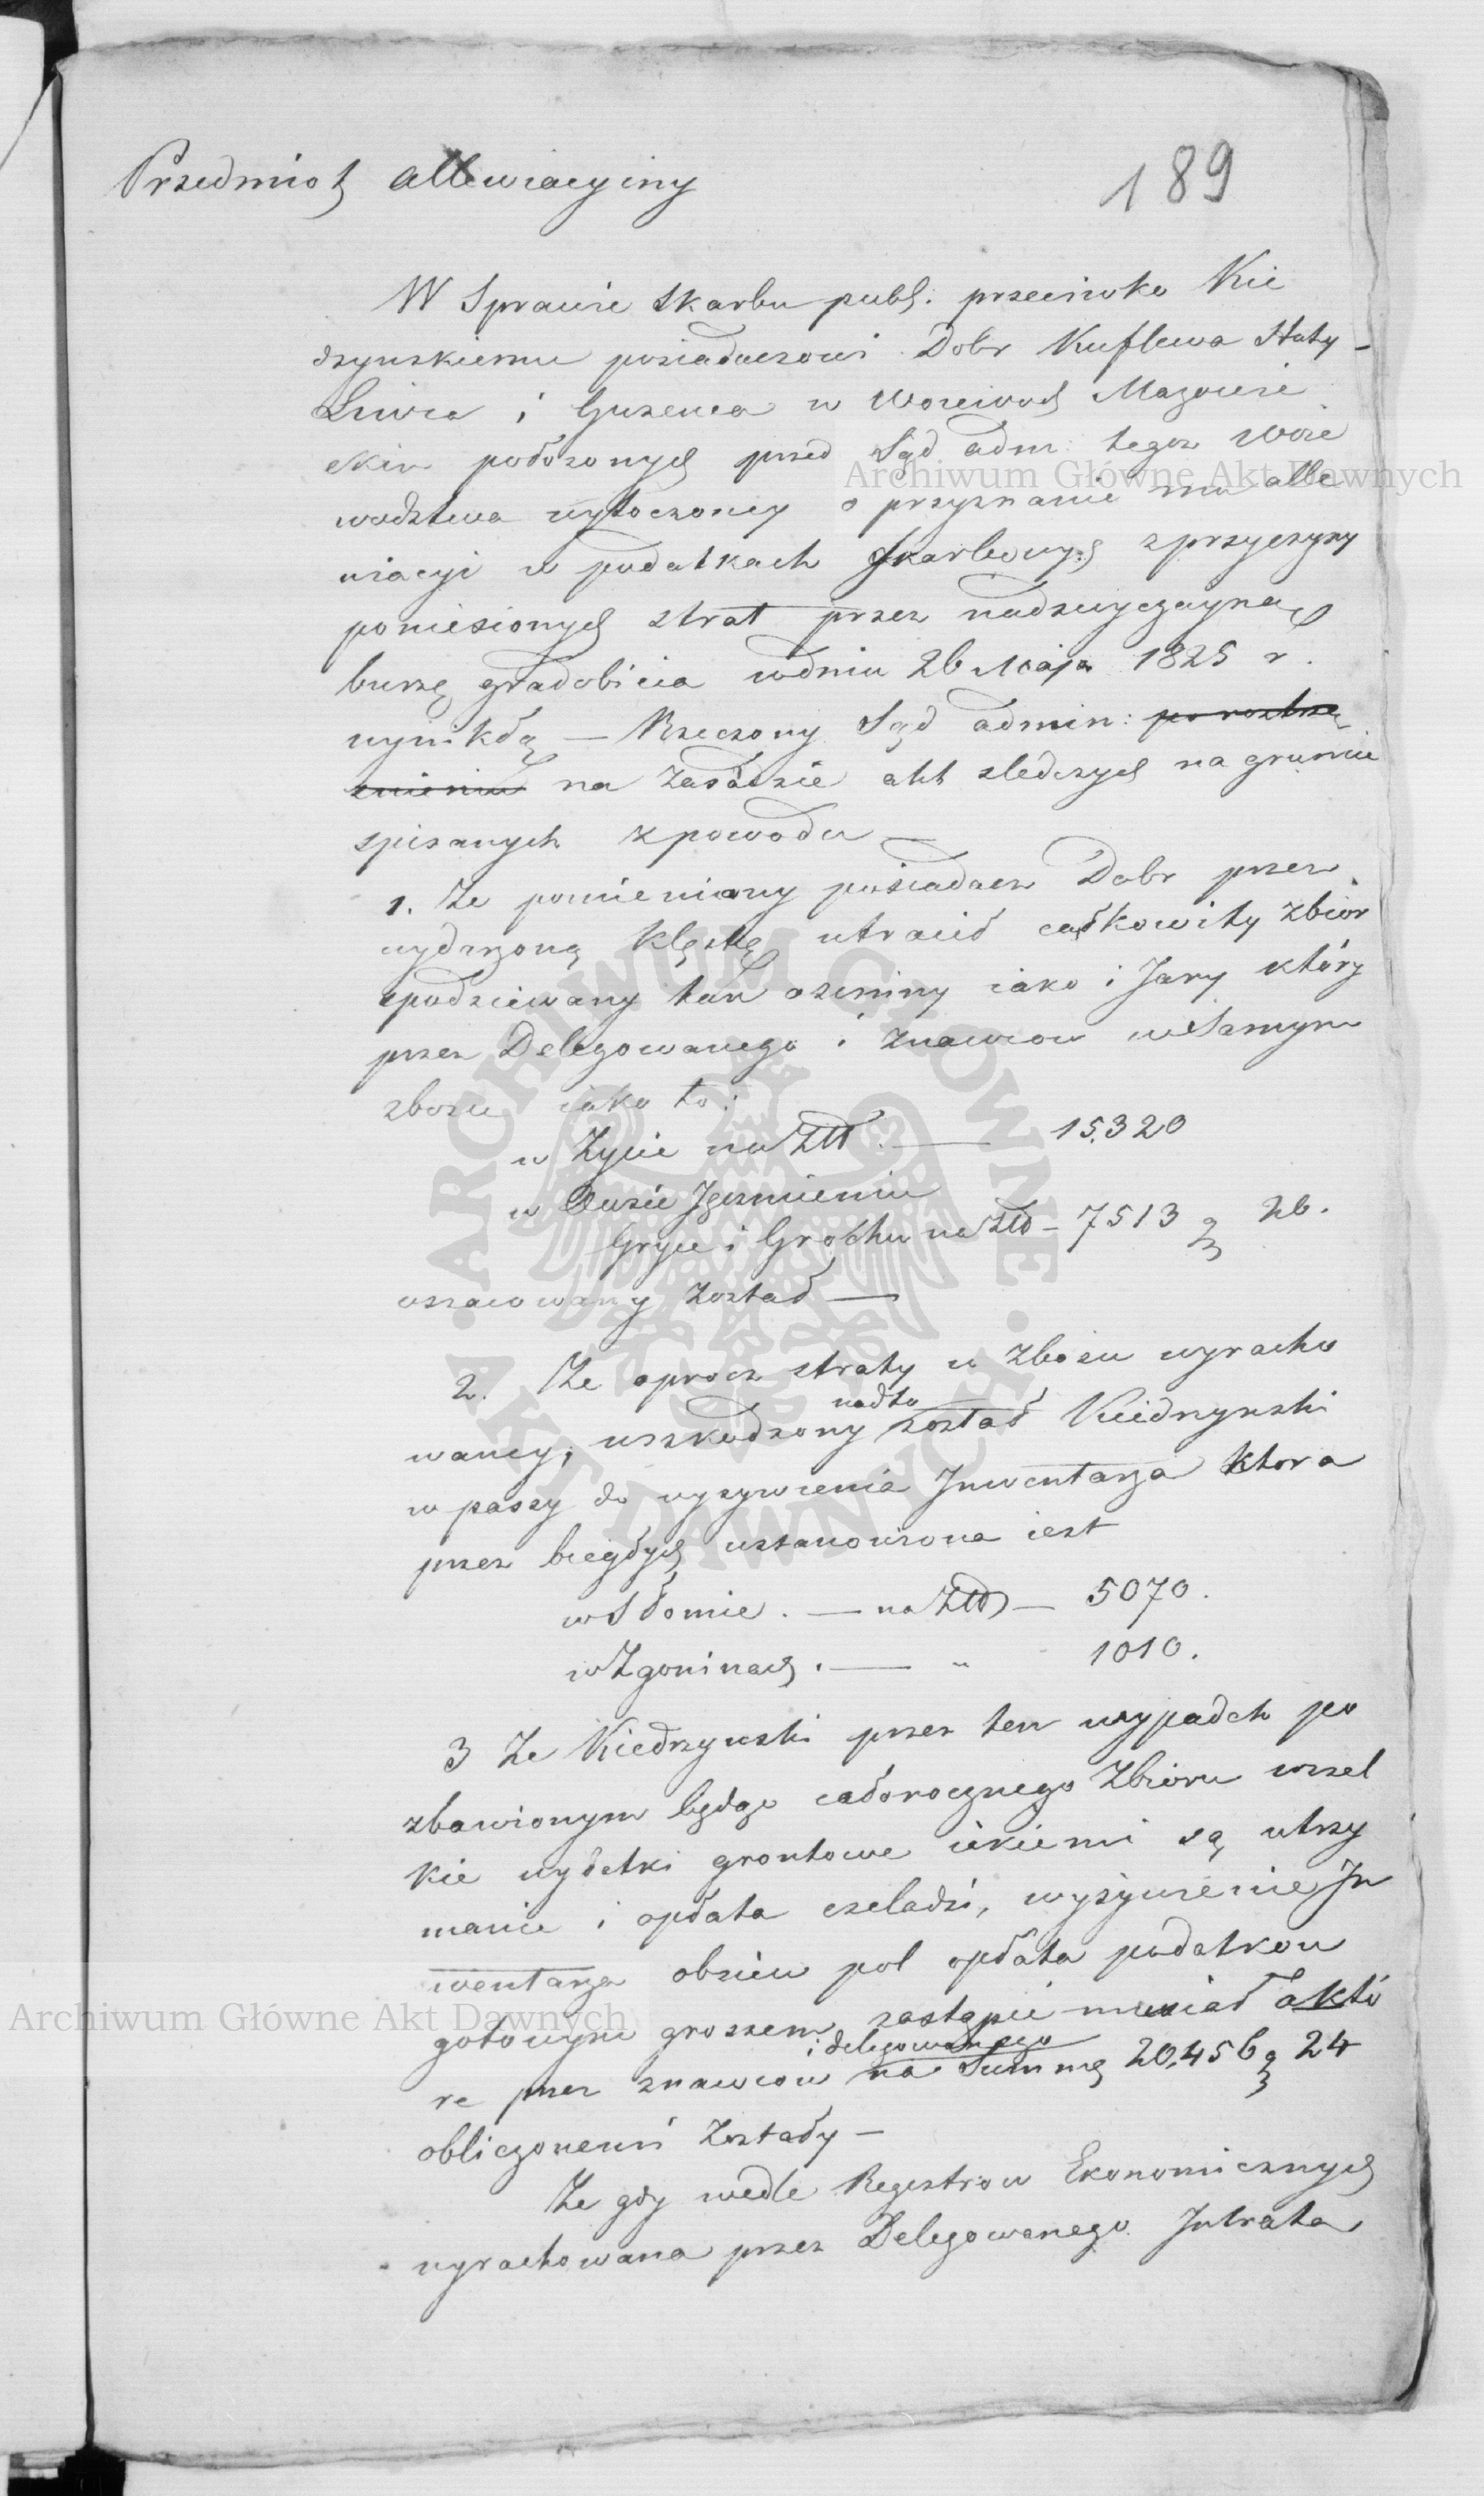 Przedmiot allewiacyiny
189
W Sprawie Skarbu publ: przeciwko Kie
dzynskiemu posiadaczowi Dobr Kuflewa Huty
Liwca i Guzewca w Woiewod Mazowie
ckim położonych przed Sąd adm: tegoż Woie
wodztwa wytoczoney o przyznanie mu alle
wiacyi w podatkach Skarbowych z przyczyny
poniesionych strat przez nadzwyczayną
burzę gradobicia w dniu 26 Maja 1825 r.
wynikłą — Rzeczony Sąd admin: po roztrzą
śnieniu na Zasadzie akt sledczych na gruncie
spisanych z powodu —
1. Ze pomieniony posiadacz Dobr przez
wydarzoną klęskę utracił całkowity zbior
spodziewany tak oziminy iako i Jary który
przez Delegowanego i Znawcow w samym
zbożu iako to:
w Życie na Złł. — 15,320
w Owsie Jęczmieniu
Gryce i Grochu na Złł — 7513 g 26.
oszacowany został —
2. Ze oprocz straty w Zbożu wyracho
waney, uszkodzony nadto został Kiedrzynski
w paszy do wyżywienia Inwentarza ktora
przez biegłych ustanowiona iest
w Słomie. — na Złł — 5070.
w Zgoninach. — „ 1010.
3 Ze Kiedrzynski przez ten wypadek po
zbawionym będąc całorocznego Zbioru wszel
kie wydatki grontowe iakiemi są utrzy
manie i opłata czeladzi, wyżywienie In
wentarza obsiew pol opłata podatkow
gotowym groszem zastąpić musiał a któ
re przez znawcow i delegowanego na Summę 20,456 g 24
obliczonemi Zostały —
Ze gdy wedle Regestrow Ekonomicznych
wyrachowana przez Delegowanego Intrata
Archiwum Główne Akt Dawnych
Archiwum Główne Akt Dawnych
· ARCHIWUM GŁÓWNE · AKT DAWNYCH